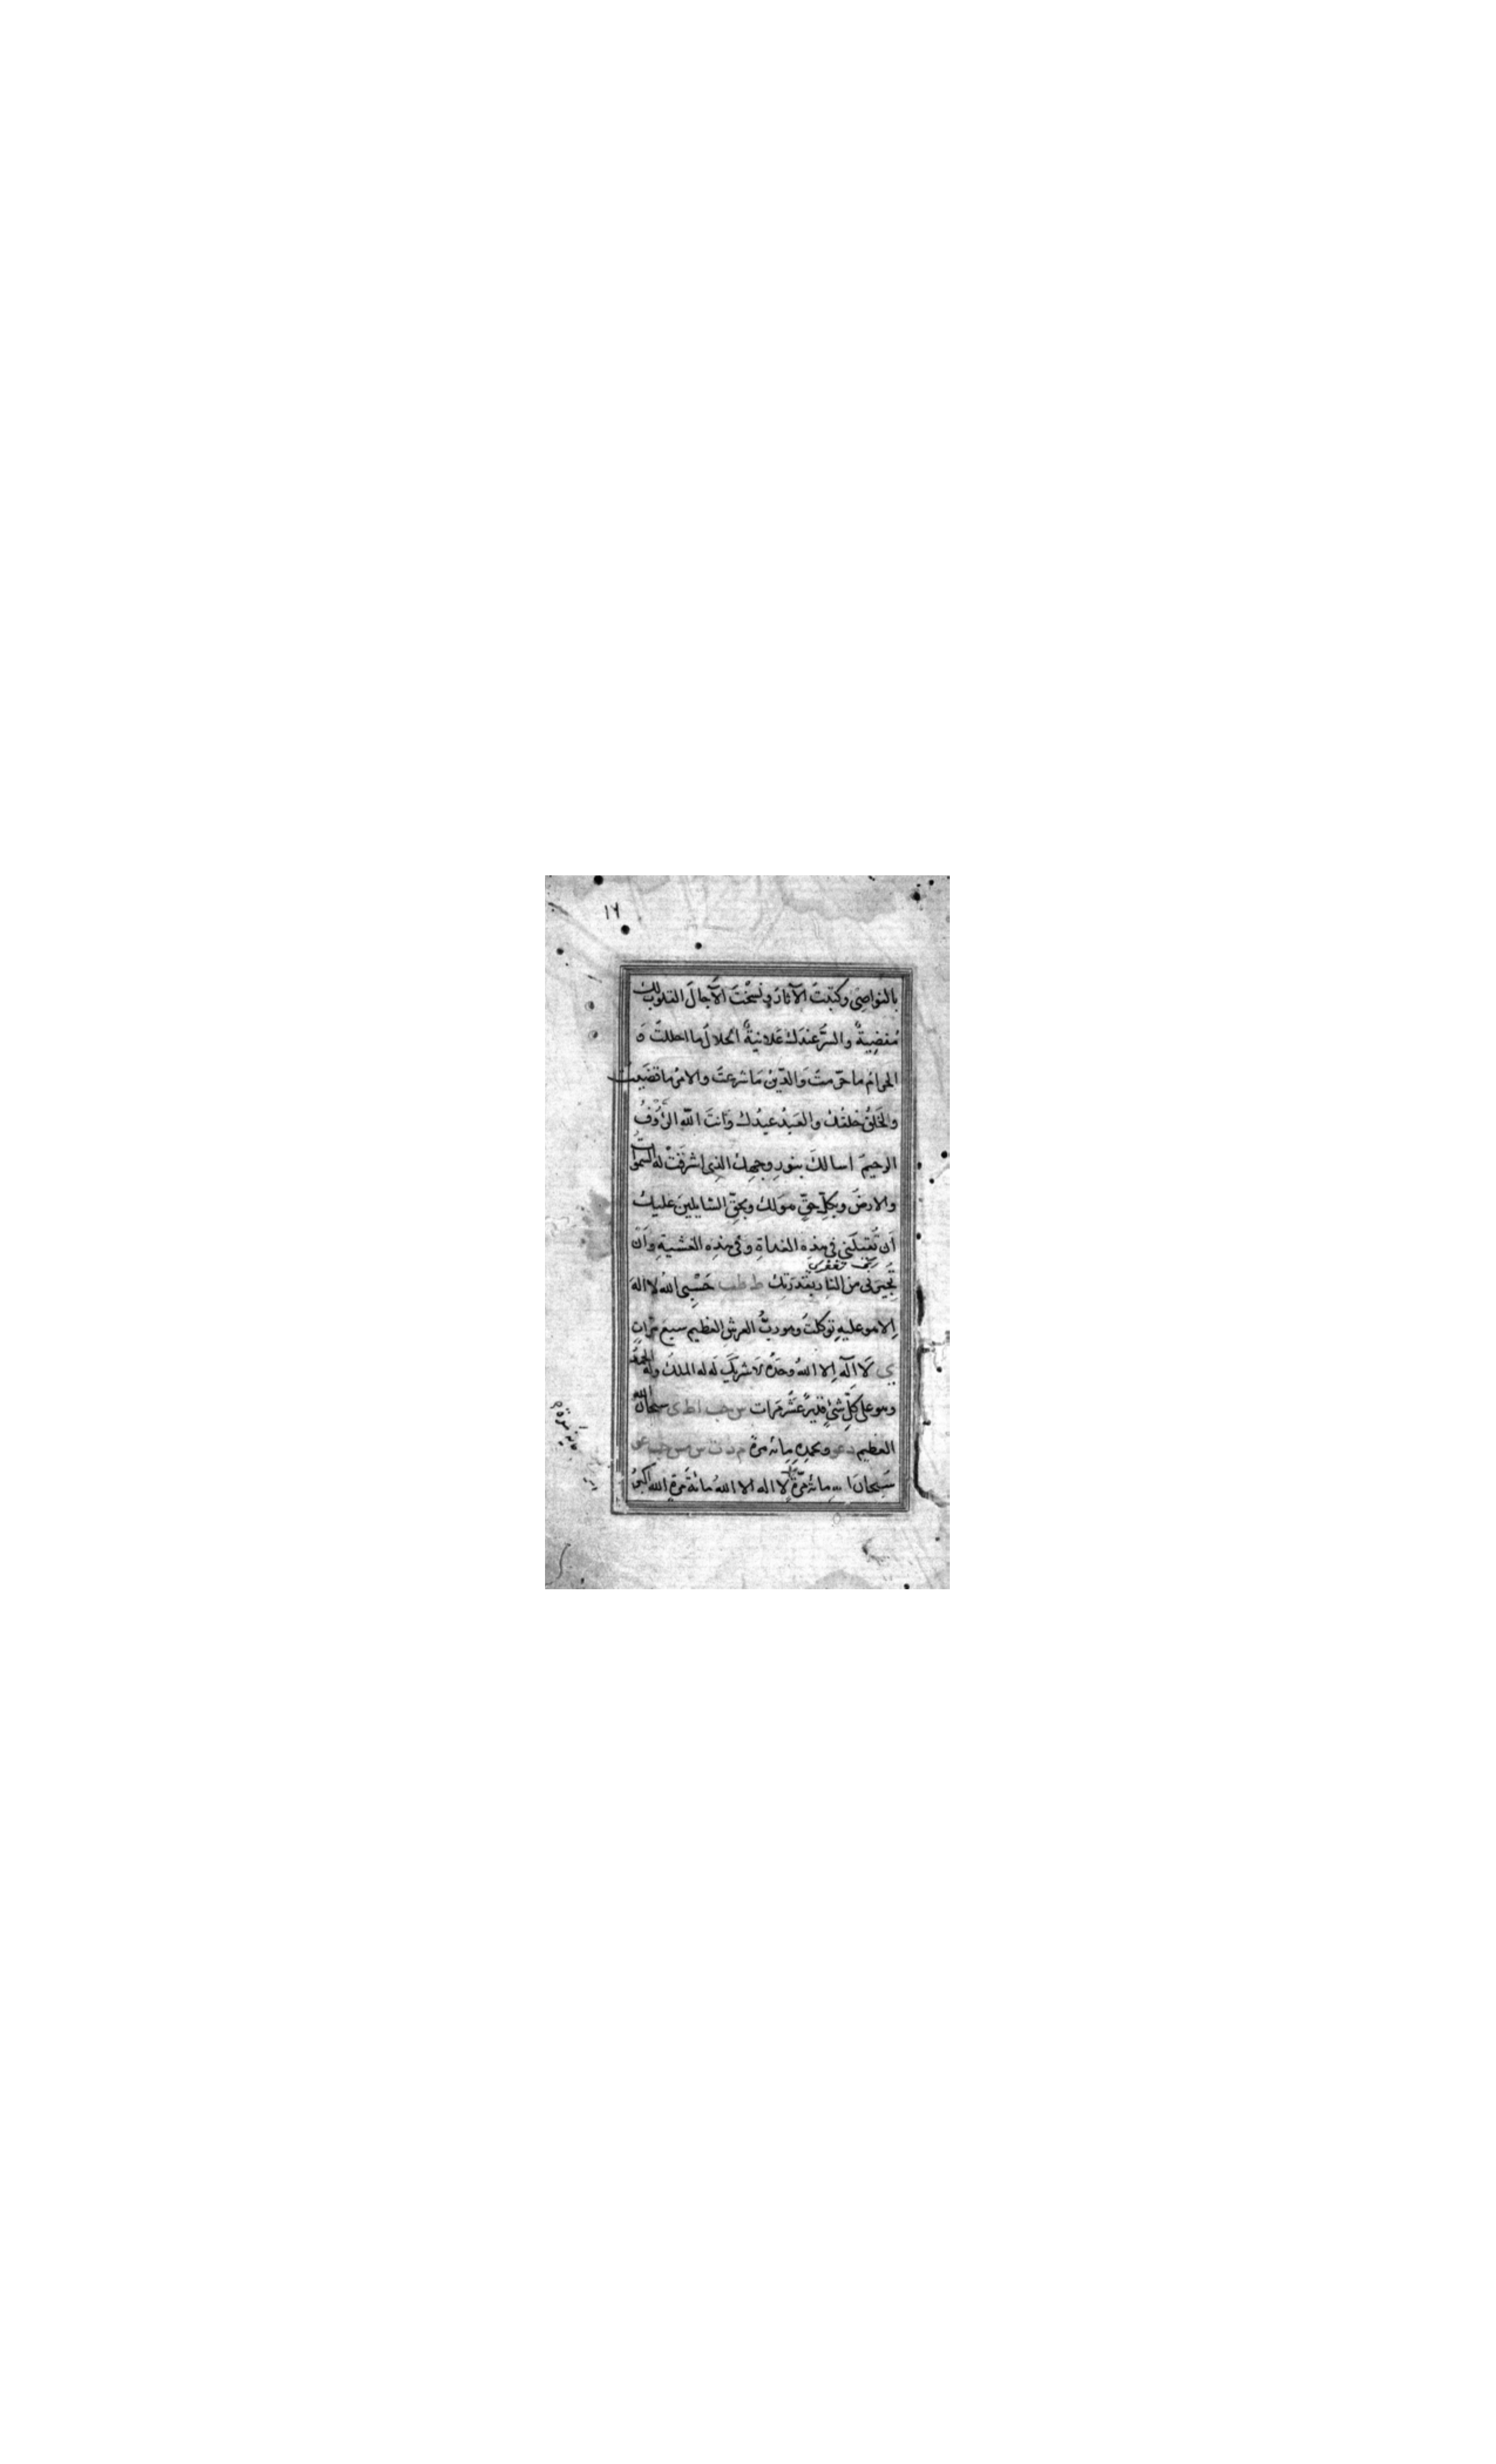 ١٦
بالنَّواصِى وكتبتَ الآثارَ ونسَخْتَ الآجالَ القلوبُ لك
مُفضِيةٌ والسرُّ عندَك عَلانيةٌ الحلالُ ما احللتَ و
الحرامُ ما حرّمتَ وَالدّينُ مَا شرعتَ والامرُ ما قضَيتَ
والخَلقُ خلقُك والعَبدُ عبدُك وَانتَ اللّٰه الرؤفُ
الرحيمُ اسالكَ بنورِ وجهِك الذِى اشرقَتْ له السمواتُ
والارضُ وبكلِّ حقٍّ هوَ لك وبحقِّ السّايلينَ عليكَ
اَن تُقبِلَني في هذِه الغداةِ وفى هذِه العَشيةِ واَن
تُجيرَنى من النارِ بقدرَتِك ط طب حَسْبِىَ اللهُ لا الهَ
اِلا هو عليهِ توكلتُ وهو ربُّ العرشِ العظيم سبعَ مرّاتٍ
ي لَا اِلٓه اِلا اللهُ وحدَهُ لا شريكَ لَه له الملكُ وله الحمدُ
وهو على كلِّ شئٍ قديرٌ عَشرُ مَرات س حب ا ط ى سبحانَ الله
العظيم دعو وبحمدِه مِائة مرة م د ت س مس حب عو
سُبحانَ ا لله مِائة مرّةً لا اله الا اللهُ مائةَ مرةٍ الله اكبرُ
مائة مرة